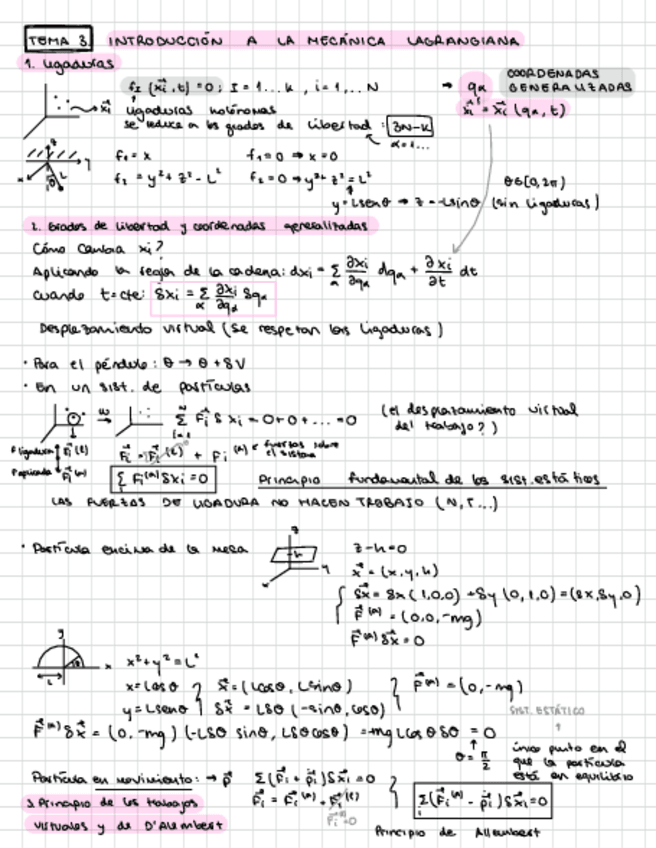 TEMA 3 INTRODUCCIÓN A LA MECÁNICA LAGRANGIANA
1. Ligaduras
f_I (x⃗_i, t) = 0 ; I = 1... k , i = 1, ... N → q_α COORDENADAS GENERALIZADAS
ligaduras holónomas
x⃗_i = x⃗_i (q_α, t)
se reduce a los grados de libertad : 3N-k
α = 1...
f_1 = x f_1 = 0 ⇒ x = 0
f_2 = y² + z² - L² f_2 = 0 ⇒ y² + z² = L²
θ ∈ [0, 2π)
y = L senθ ⇒ z = -L sinθ (sin ligaduras)
2. Grados de libertad y coordenadas generalizadas
Cómo cambia x_i?
Aplicando la regla de la cadena: dx_i = Σ_α ∂x_i/∂q_α dq_α + ∂x_i/∂t dt
cuando t = cte: δx_i = Σ_α ∂x_i/∂q_α δq_α
Desplazamiento virtual (se respetan las ligaduras)
· Para el péndulo : θ → θ + δV
· En un sist. de partículas
Σ F⃗_i δx_i = 0 + 0 + ... = 0 (el desplazamiento virtual del trabajo?)
F ligadura F⃗_i^(l)
F aplicada F⃗_i^(a)
F⃗_i = F⃗_i^(l) + F_i^(a) fuerzas sobre el sistema
Σ_i F_i^(a) δx_i = 0 Principio fundamental de los sist. estáticos
LAS FUERZAS DE LIGADURA NO HACEN TRABAJO (N, T...)
· Partícula encima de la mesa z - h = 0
x⃗ = (x, y, h)
δx⃗ = δx (1,0,0) + δy (0,1,0) = (δx, δy, 0)
F⃗^(a) = (0,0,-mg)
F⃗^(a) δx⃗ = 0
x² + y² = L²
x = L cosθ x⃗ = (L cosθ, L sinθ) F⃗^(a) = (0, -mg)
y = L senθ δx⃗ = Lδθ (-sinθ, cosθ) SIST. ESTÁTICO
F⃗^(a) δx⃗ = (0, -mg) (-Lδθ sinθ, Lδθ cosθ) = -mg L cosθ δθ = 0
θ = π/2 único punto en el que la partícula está en equilibrio
Partícula en movimiento: → p⃗ Σ (F⃗_i + ṗ_i) δx⃗_i = 0
3. Principio de los trabajos virtuales y de D'Alembert
F⃗_i = F⃗_i^(a) + F⃗_i^(l)
Σ_i (F⃗_i^(a) - ṗ_i) δx⃗_i = 0
Principio de Allembert